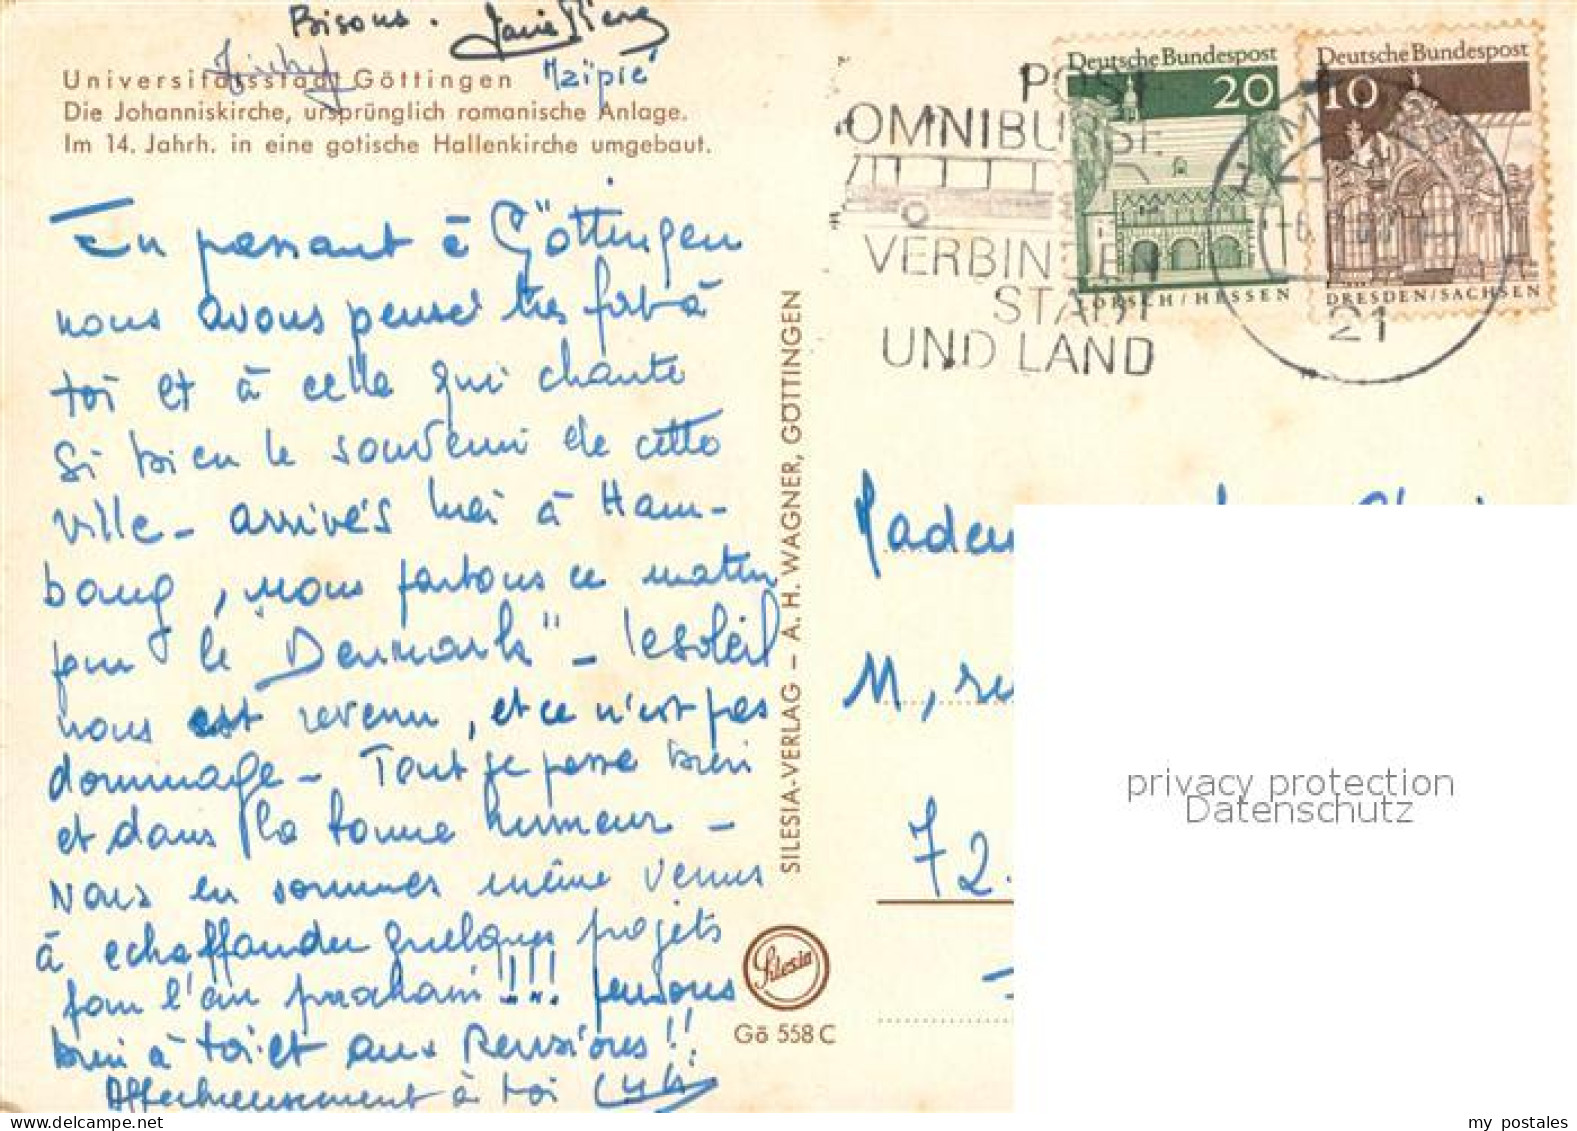 Bisous.
Universitätsstadt Göttingen
Die Johanniskirche, ursprünglich romanische Anlage.
Im 14. Jahrh. in eine gotische Hallenkirche umgebaut.
En passant à Göttingen
nous avons pensé très fort à
toi et à celle qui chante
si bien le souvenir de cette
ville – arrivés hier à Ham-
bourg, nous partons ce matin
pour le "Denmark" – le soleil
nous est revenu, et ce n'est pas
dommage – Tout se passe bien
et dans la bonne humeur –
Nous en sommes même venus
à echaffauder quelques projets
pour l'an prochain!!!... pensons
bien à toi et aux Rensiores!!
Affectueusement à toi
SILESIA-VERLAG – A. H. WAGNER, GÖTTINGEN
Silesia
Gö 558 C
POST
OMNIBUSSE
VERBINDEN
STADT
UND LAND
Deutsche Bundespost
20
LORSCH/HESSEN
Deutsche Bundespost
10
DRESDEN/SACHSEN
21
M, ru
72.
privacy protection
Datenschutz
my postales